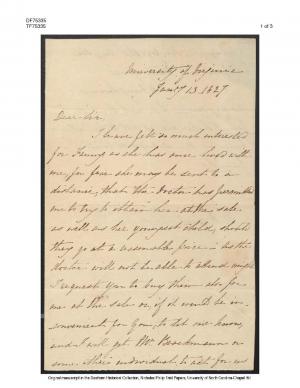 DF75335
TF75335
1 of 3
University of Virginia
Jany 13 1827
Dear Sir.
I have felt so much interested
for Fanny as she has once lived with
me, for fear she may be sent to a
distance, that the Doctor has permitted
me to try to obtain her at the sale
as well as her youngest child, should
they go at a reasonable price - as the
Doctor will not be able to attend might
I request you to buy them for
me at the sale or if it would be in-
convenient for you, to let me know,
and I will get Mr Brockman or
some other individual to act for me
Original manuscript in the Southern Historical Collection, Nicholas Philip Trist Papers, University of North Carolina-Chapel Hill